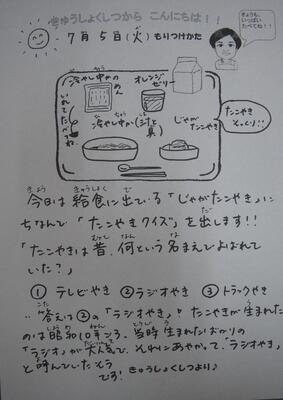 きゅうしょくしつから こんにちは！！
きょうも、
いっぱい
たべてね！！
7月5日(火) もりつけかた
冷やし中かの
めん
オレンジ
ゼリー
いれてたべるね。
冷やし中か(汁と具)
じゃが
たこやき
たこやき
そっくり!!
今日は給食に出ている「じゃがたこやき」に
ちなんで「たこやきクイズ」を出します!!
「たこやきは昔、何という名まえでよばれて
いた？」
① テレビやき ② ラジオやき ③ トラックやき
答えは②の「ラジオやき」。たこやきが生まれた
のは昭和10年ごろ。当時生まれたばかりの
「ラジオ」が大人気で、それにあやかって、「ラジオやき」
と呼んでいたそう
です! きゅうしょくしつより♪